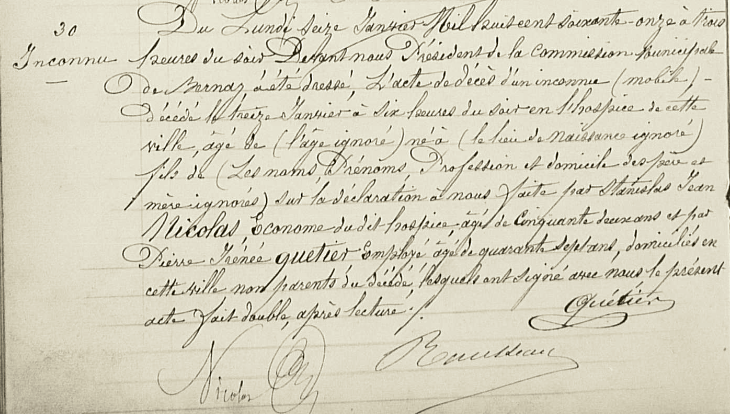 30
Inconnu
Du Lundi seize Janvier Mil huit cent soixante-onze à trois
heures du soir Devant nous Président de la Commission Municipale
De Bernay a été dressé, L'acte de décès d'un inconnu (mobile) -
décédé le treize Janvier à six heures du soir en l'hospice de cette
ville, âgé de (l'âge ignoré) né à (le lieu de naissance ignoré)
fils de (Les noms, Prénoms, Profession et domicile des père et
mère ignorés) sur la déclaration à nous faite par Stanislas Jean
Nicolas Econome du dit hospice âgé de Cinquante deux ans et par
Pierre Irénée Quetier Employé âgé de quarante sept ans, domiciliés en
cette ville non parents du décédé, lesquels ont signé avec nous le présent
acte fait double, après lecture ./.
Quétier
Nicolas